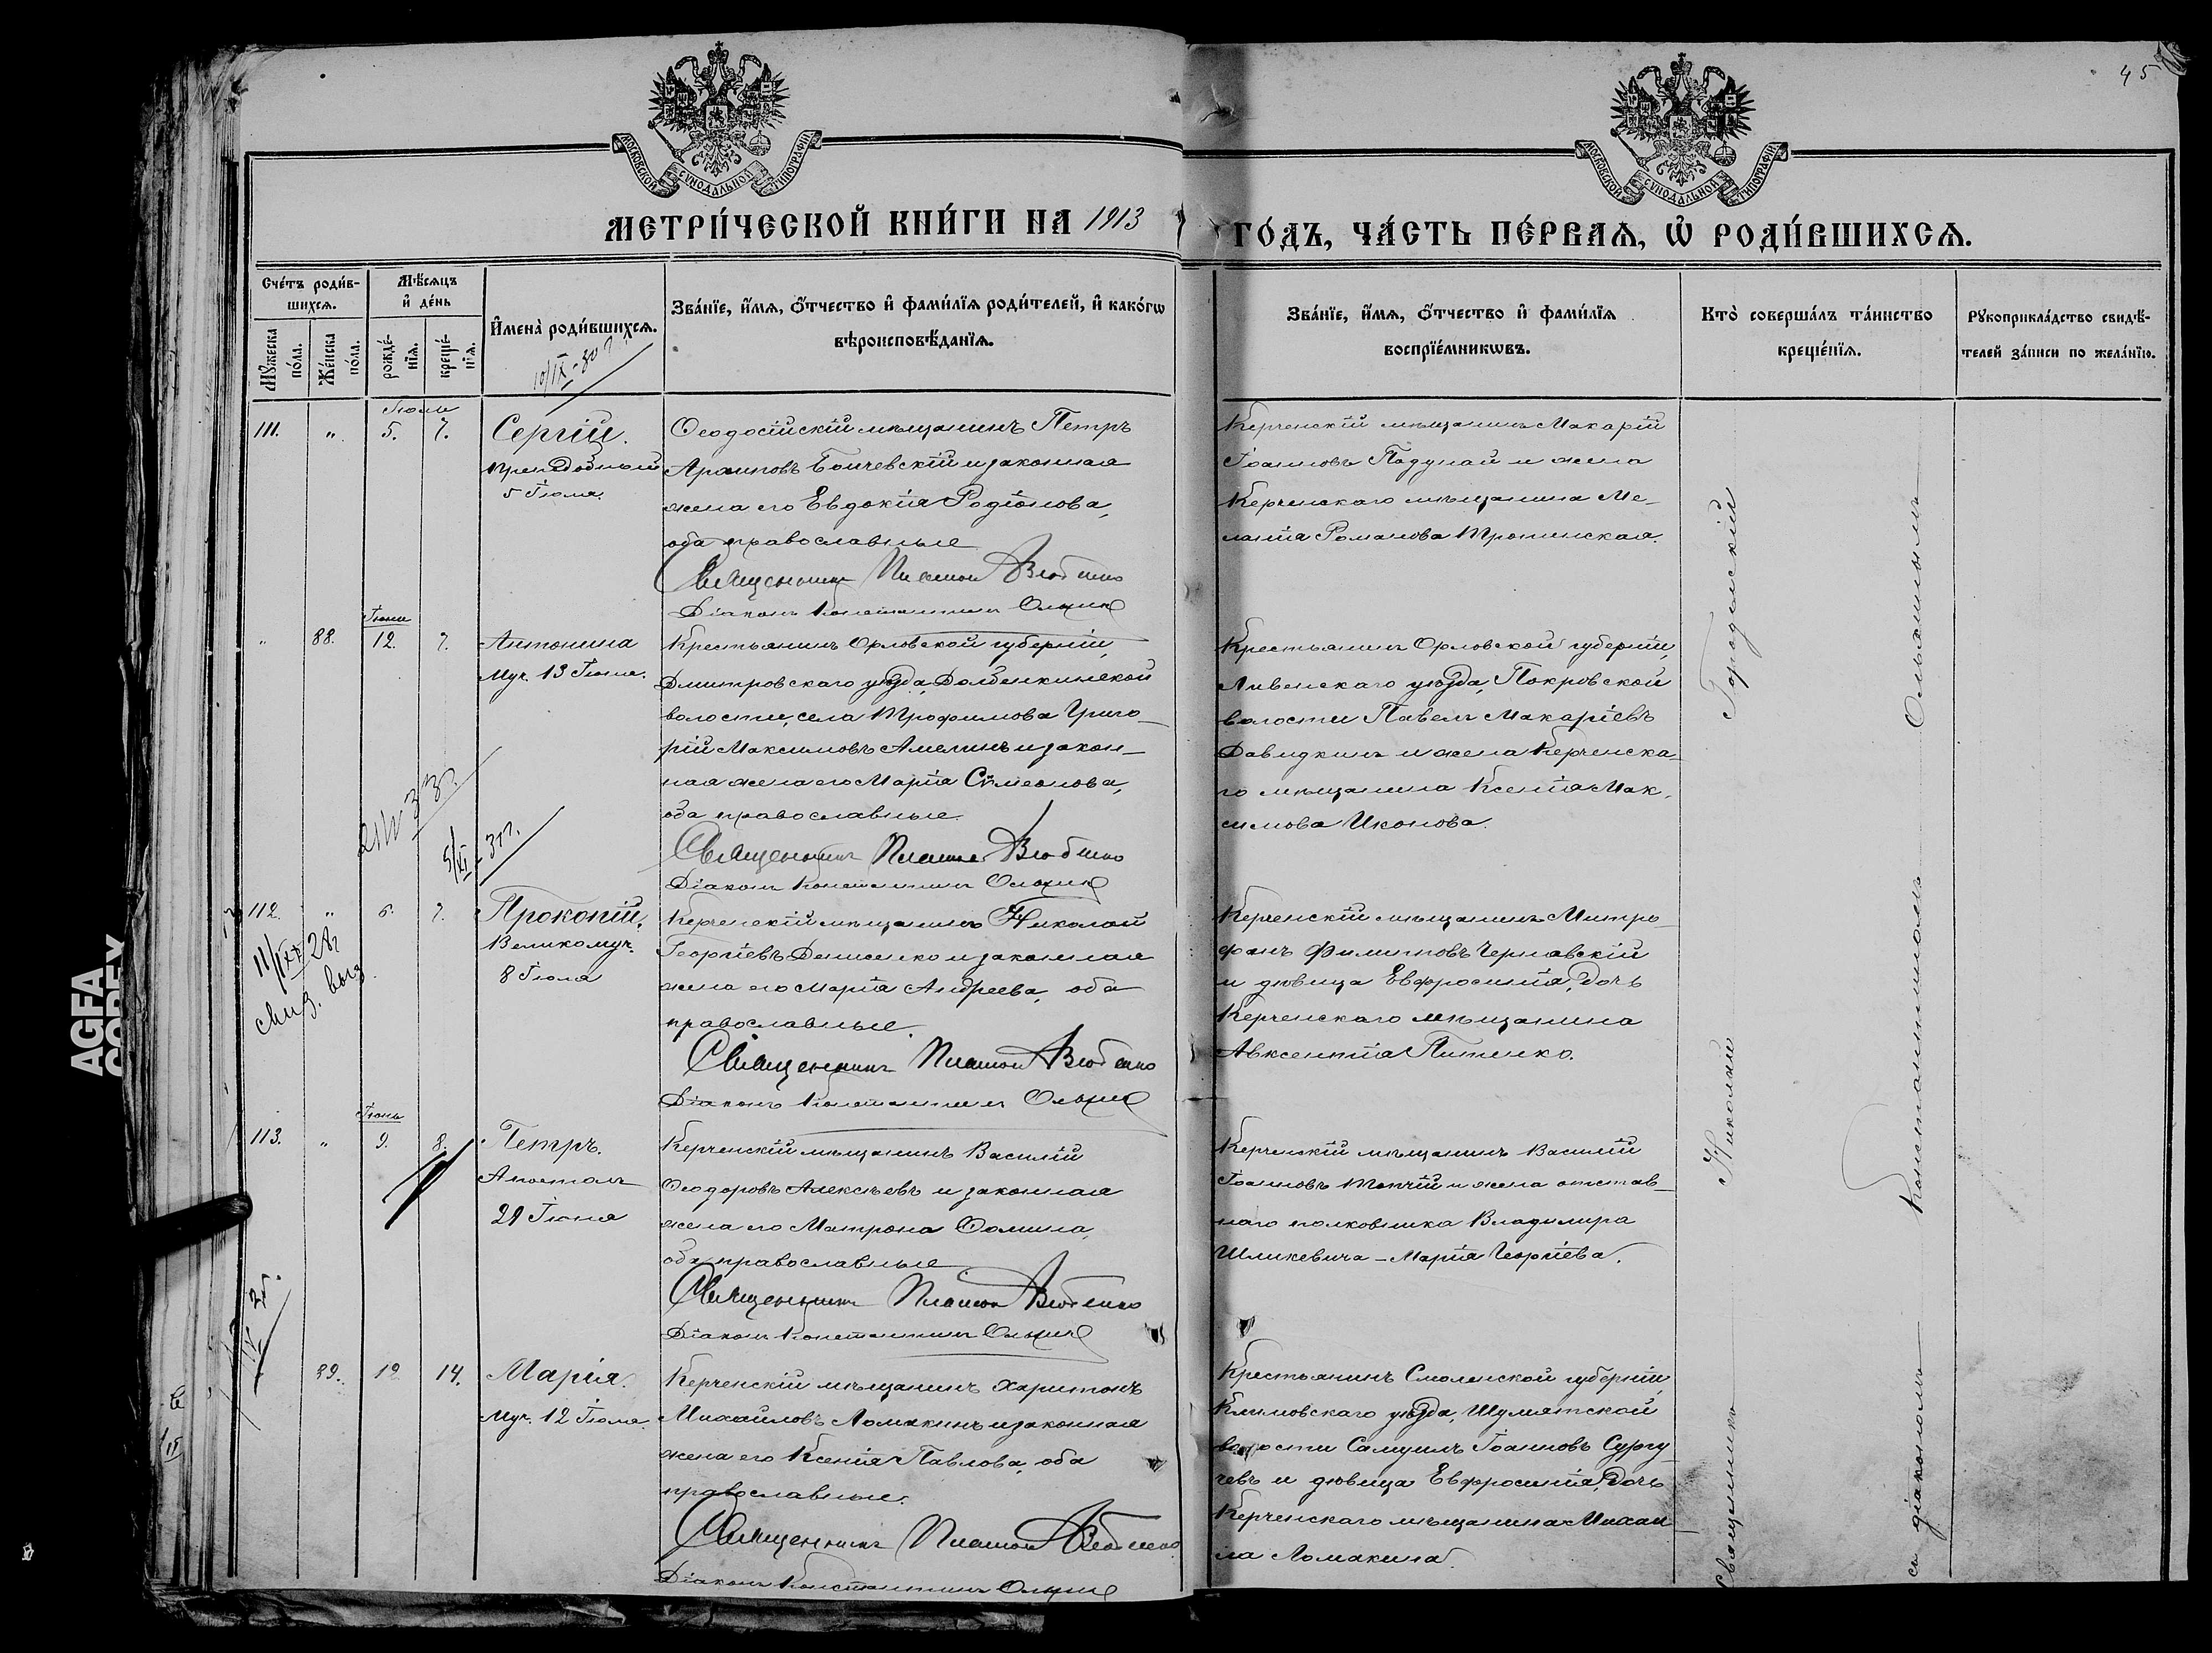 45
МОСКОВСКОЙ СѴНОДАЛЬНОЙ ТИПОГРАФІИ
МОСКОВСКОЙ СѴНОДАЛЬНОЙ ТИПОГРАФІИ
МЕТРИ́ЧЕСКОЙ КНИ́ГИ НА 1913 ГО́ДЪ, ЧА́СТЬ ПЕ́РВАѦ, Ѡ҆ РОДИ́ВШИХСѦ.
Сче́тъ роди́в-
шихсѧ.
Мꙋ́жеска по́ла.
Же́нска по́ла.
Мѣ́сѧцъ
и҆ де́нь
рожде́-
нїѧ.
креще́-
нїѧ.
И҆мена̀ роди́вшихсѧ.
Зва́нїе, и҆́мѧ, ѻ҆́тчество и҆ фами́лїѧ роди́телей, и҆ како́гѡ
вѣроисповѣ́данїѧ.
Зва́нїе, и҆́мѧ, ѻ҆́тчество и҆ фами́лїѧ
воспрїе́мникѡвъ.
Кто̀ соверша́лъ та́инство
креще́нїѧ.
Рꙋкоприкла́дство свидѣ́-
телей за́писи по жела́нїю.
Іюль
111. " 5. 7. Сергій.
Преподобный
5 Іюля.
Ѳеодосійскій мѣщанинъ Петръ
законная
жена его Евдокія Родіонова,
оба православные
Священникъ
Діаконъ Константинъ Ольхинъ
Керченскій мѣщанинъ Макарій
Іоанновъ Подунай и жена
Керченскаго мѣщанина Ме-
ланія Романова
Іюнь
" 88. 12. 7. Антонина
Муч. 13 Іюня.
Крестьянинъ Орловской губерніи,
Дмитровскаго уѣзда, Долбенкинской
волости, села Трофимова Григо-
рій Максимовъ Амелинъ и закон-
ная жена его Марія Сѵмеонова,
оба православные.
Священникъ
Діаконъ Константинъ Ольхинъ
Крестьянинъ Орловской губерніи,
Ливенскаго уѣзда, Покровской
волости Павелъ Макаріевъ
Давидкинъ и жена Керченска-
го мѣщанина Ксенія Мак-
симова Иконова.
112. " 6. 7. Прокопій.
Великомуч.
8 Іюля
Керченскій мѣщанинъ Николай
Георгіевъ Денисенко и законная
жена его Марія Андреева, оба
православные.
Священникъ
Діаконъ Константинъ Ольхинъ
Керченскій мѣщанинъ Митро-
фанъ Филипповъ Чернавскій
и дѣвица Евфросинія, дочь
Керченскаго мѣщанина
Авксентія
Іюнь
113. " 9. 8. Петръ.
Апостолъ
29 Іюня
Керченскій мѣщанинъ Василій
Ѳеодоровъ Алексѣевъ и законная
жена его Матрона Ѳомина,
оба православные
Священникъ
Діаконъ Константинъ Ольхинъ
Керченскій мѣщанинъ Василій
Іоанновъ Топчій и жена отстав-
наго полковника Владимира
Шликевича - Марія Георгіева.
89. 12 14. Марія.
Муч. 12 Іюля.
Керченскій мѣщанинъ Харитонъ
Михайловъ Ломакинъ и законная
жена его Ксенія Павлова, оба
православные.
Священникъ
Діаконъ Константинъ Ольхинъ
Крестьянинъ Смоленской губерніи,
Климовскаго уѣзда, Шумятской
волости Самуилъ Іоанновъ Сургу-
чевъ и дѣвица Евфросинія, дочь
Керченскаго мѣщанина Михаи-
ла Ломакина.
Священникъ Николай Городенскій
съ діакономъ Константиномъ Ольхинымъ
AGFA